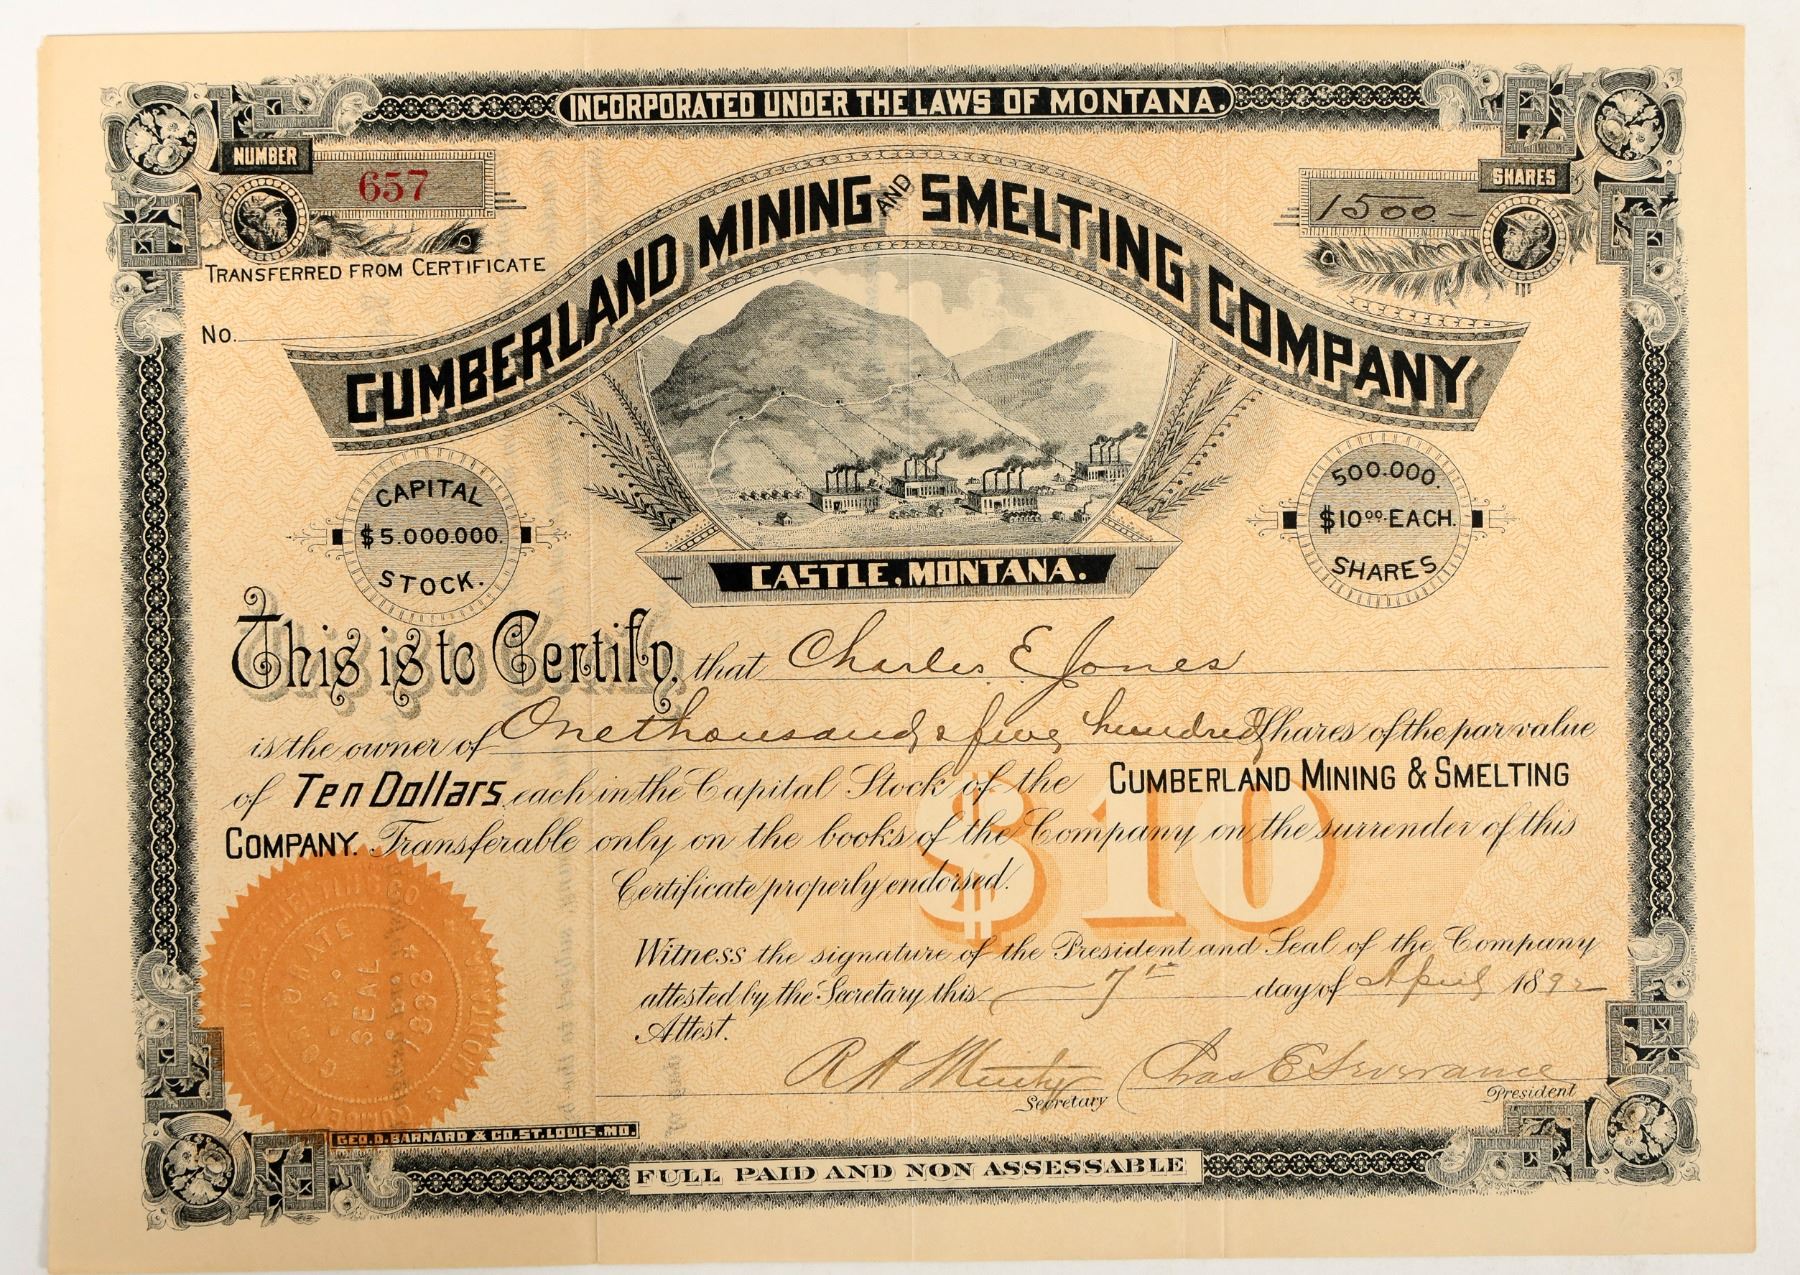 INCORPORATED UNDER THE LAWS OF MONTANA.
NUMBER
657
SHARES
1500-
TRANSFERRED FROM CERTIFICATE
No.
CUMBERLAND MINING AND SMELTING COMPANY
CAPITAL
$5.000.000.
STOCK.
500.000.
$10.00 EACH.
SHARES
CASTLE, MONTANA.
This is to Certify, that Charles E Jones
is the owner of One thousand & five hundred Shares of the par value
of Ten Dollars each in the Capital Stock of the CUMBERLAND MINING & SMELTING
COMPANY. Transferable only on the books of the Company on the surrender of this
Certificate properly endorsed.
$10
Witness the signature of the President and Seal of the Company
attested by the Secretary this 7th day of April 1892
Attest.
Chas E Severance
Secretary
President
CORPORATE
SEAL
GEO.D.BARNARD & CO.ST.LOUIS.MO.
FULL PAID AND NON ASSESSABLE